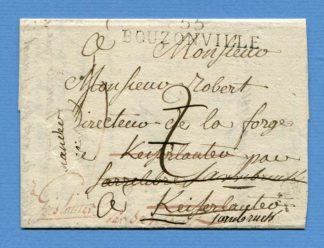 55
BOUZONVILLE
a Monsieur
Monsieur Robert
Directeur de la forge
a Keiserlauter par
Sarrelibre Sarrebruck
a Keiserlauter
Sarrebruck